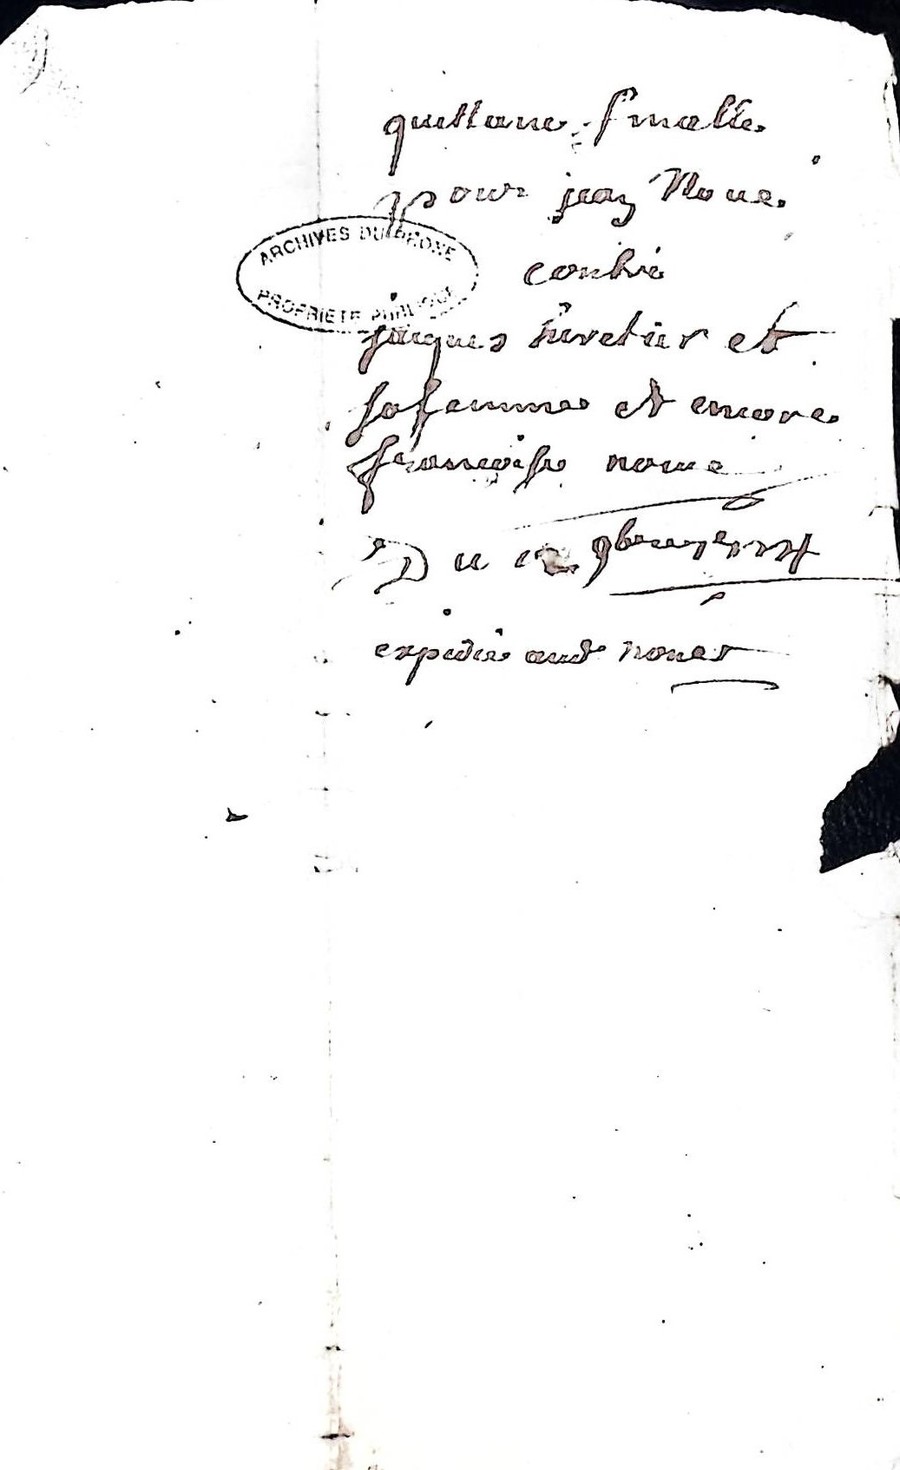 quittance finalle
pour jean Noue
ARCHIVES DU RHONE
PROPRIETE PUBLIQUE
contre
jacques et
sa femme et encore
francoise noue
Du 9bre
expedié audt noues